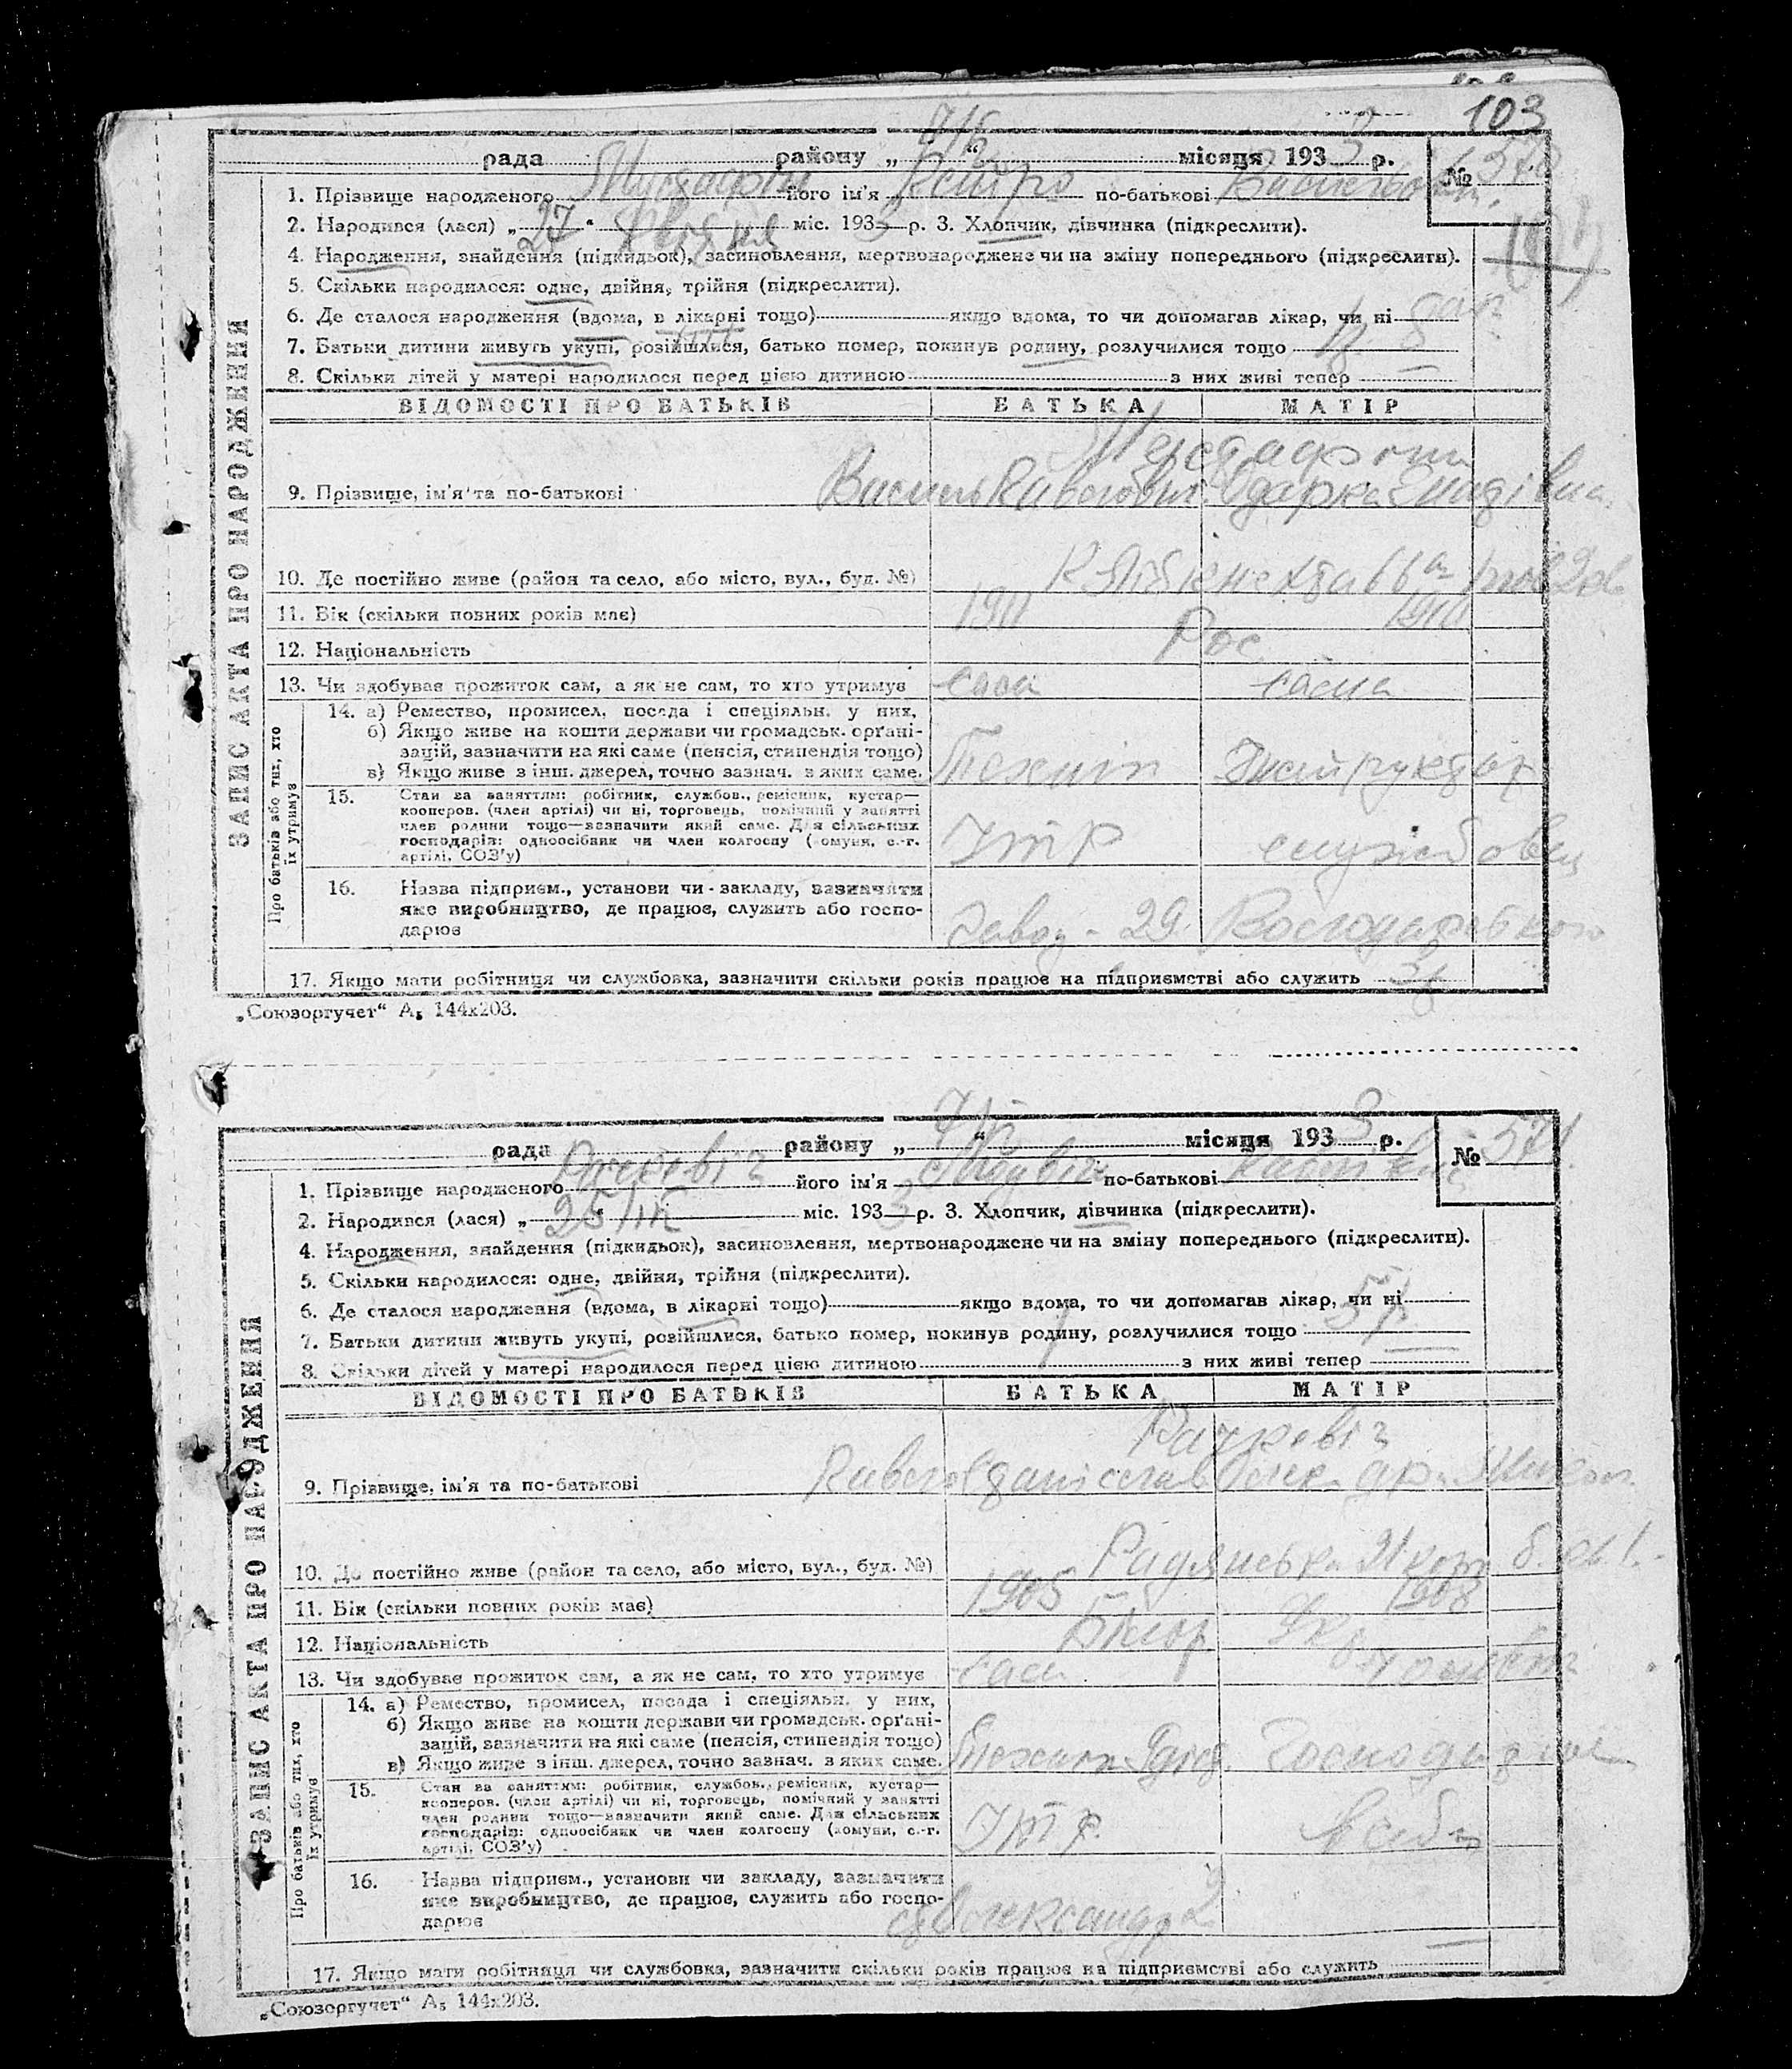 103
рада району „ 7/V “ місяця 193 3 р.
№ 570
1. Прізвище народженого його ім'я Петро по-батькові
2. Народився (лася) „ 27 “ міс. 193 3 р. 3. Хлопчик, дівчинка (підкреслити).
4. Народження, знайдення (підкидьок), засиновлення, мертвонароджене чи на зміну попереднього (підкреслити).
5. Скільки народилося: одне, двійня, трійня (підкреслити).
6. Де сталося народження (вдома, в лікарні тощо) якщо вдома, то чи допомагав лікар, чи ні
7. Батьки дитини живуть укупі, розійшлися, батько помер, покинув родину, розлучилися тощо
8. Скільки дітей у матері народилося перед цією дитиною з них живі тепер
ЗАПИС АКТА ПРО НАРОДЖЕННЯ
ВІДОМОСТІ ПРО БАТЬКІВ БАТЬКА МАТІР
9. Прізвище, ім'я та по-батькові Василь Павлович Одарка
10. Де постійно живе (район та село, або місто, вул., буд. №) К. Лібкнехта 66а
11. Вік (скільки повних років має) 1911 1910
12. Національність Рос
13. Чи здобуває прожиток сам, а як не сам, то хто утримує сам сама
Про батьків або тих, хто їх утримує
14. а) Ремество, промисел, посада і спеціяльн. у них,
б) Якщо живе на кошти держави чи громадськ. орґані-
зацій, зазначити на які саме (пенсія, стипендія тощо)
в) Якщо живе з інш. джерел, точно зазнач. з яких саме.
Технік Інструктор
15. Стан за заняттям: робітник, службов., ремісник, кустар—
кооперов. (член артілі) чи ні, торговець, помічний у занятті
член родини тощо—зазначити який саме. Для сільських
господарів: одноосібник чи член колгоспу (комуни, с.-г.
артілі, СОЗ'у)
ІТР службовец
16. Назва підприєм., установи чи закладу, зазначити
яке виробництво, де працює, служить або госпо-
дарює
Завод - 29
17. Якщо мати робітниця чи службовка, зазначити скільки років працює на підприємстві або служить
„Союзоргучет“ А5 144х203.
рада району „ 7/V “ місяця 193 3 р.
№ 571
1. Прізвище народженого його ім'я по-батькові
2. Народився (лася) „ 25/IV “ міс. 193 3 р. 3. Хлопчик, дівчинка (підкреслити).
4. Народження, знайдення (підкидьок), засиновлення, мертвонароджене чи на зміну попереднього (підкреслити).
5. Скільки народилося: одне, двійня, трійня (підкреслити).
6. Де сталося народження (вдома, в лікарні тощо) якщо вдома, то чи допомагав лікар, чи ні
7. Батьки дитини живуть укупі, розійшлися, батько помер, покинув родину, розлучилися тощо
8. Скільки дітей у матері народилося перед цією дитиною з них живі тепер
ЗАПИС АКТА ПРО НАРОДЖЕННЯ
ВІДОМОСТІ ПРО БАТЬКІВ БАТЬКА МАТІР
9. Прізвище, ім'я та по-батькові
10. Де постійно живе (район та село, або місто, вул., буд. №) Радянська 21
11. Вік (скільки повних років має) 1905 1908
12. Національність Білор Ук
13. Чи здобуває прожиток сам, а як не сам, то хто утримує сам
Про батьків або тих, хто їх утримує
14. а) Ремество, промисел, посада і спеціяльн. у них,
б) Якщо живе на кошти держави чи громадськ. орґані-
зацій, зазначити на які саме (пенсія, стипендія тощо)
в) Якщо живе з інш. джерел, точно зазнач. з яких саме.
15. Стан за заняттям: робітник, службов., ремісник, кустар—
кооперов. (член артілі) чи ні, торговець, помічний у занятті
член родини тощо—зазначити який саме. Для сільських
господарів: одноосібник чи член колгоспу (комуни, с.-г.
артілі, СОЗ'у)
ІТР
16. Назва підприєм., установи чи закладу, зазначити
яке виробництво, де працює, служить або госпо-
дарює
17. Якщо мати робітниця чи службовка, зазначити скільки років працює на підприємстві або служить
„Союзоргучет“ А5 144х203.